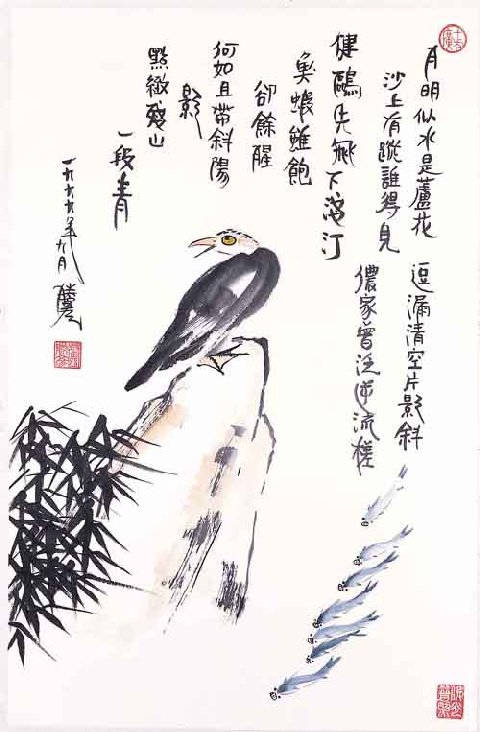 月明似水是蘆花
逗漏清空片影斜
沙上有蹤誰得見
儂家曾泛逆流槎
健鷗先飛下汀
魚蝦雖飽
卻餘醒
何如且帶斜陽
影
點緻殘山
一段青
年九月